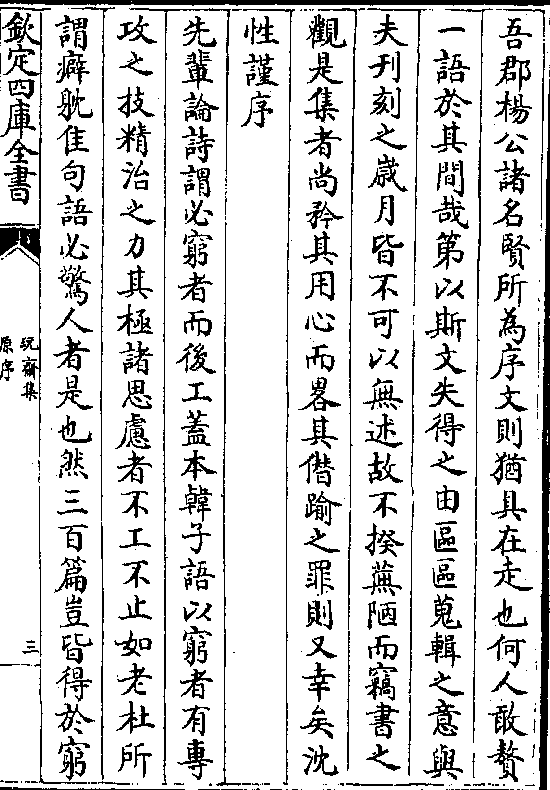 吾郡楊公諸名賢所為序文則猶具在走也何人敢贅
一語於其間哉第以斯文失得之由區區蒐輯之意與
夫刊刻之歲月皆不可以無述故不揆蕪陋而竊書之
觀是集者尚矜其用心而畧其僭踰之罪則又幸矣沈
性謹序
先輩論詩謂必窮者而後工蓋本韓子語以窮者有專
攻之技精治之力其極諸思慮者不工不止如老杜所
謂癖躭佳句語必驚人者是也然三百篇豈皆得於窮
欽定四庫全書
玩齋集
原序
三